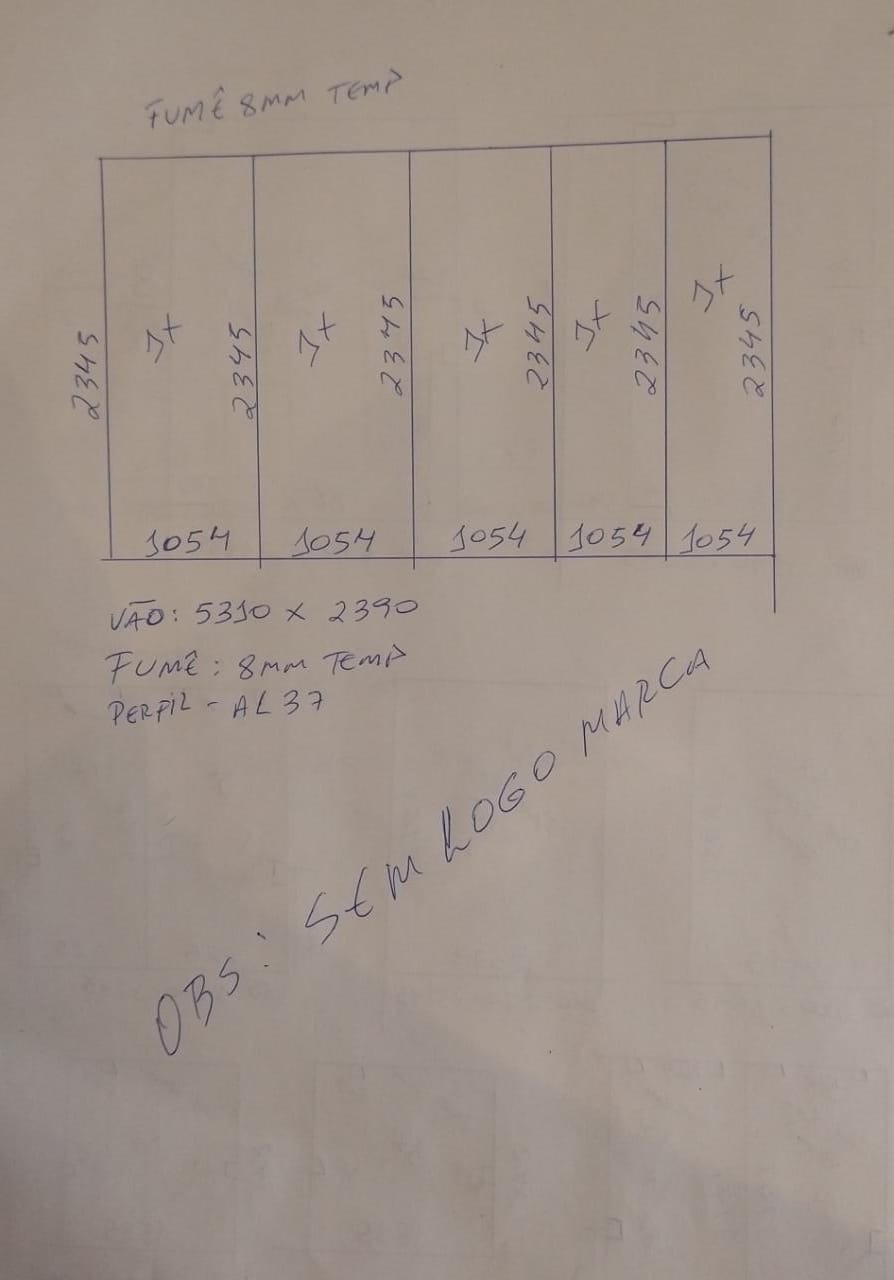 FUMÊ 8MM TEMP
2345
2345
2345
2345
2345
2345
1054 1054 1054 1054 1054
VÃO: 5310 x 2390
FUMÊ: 8MM TEMP
PERFIL - AL 37
OBS: SEM LOGO MARCA